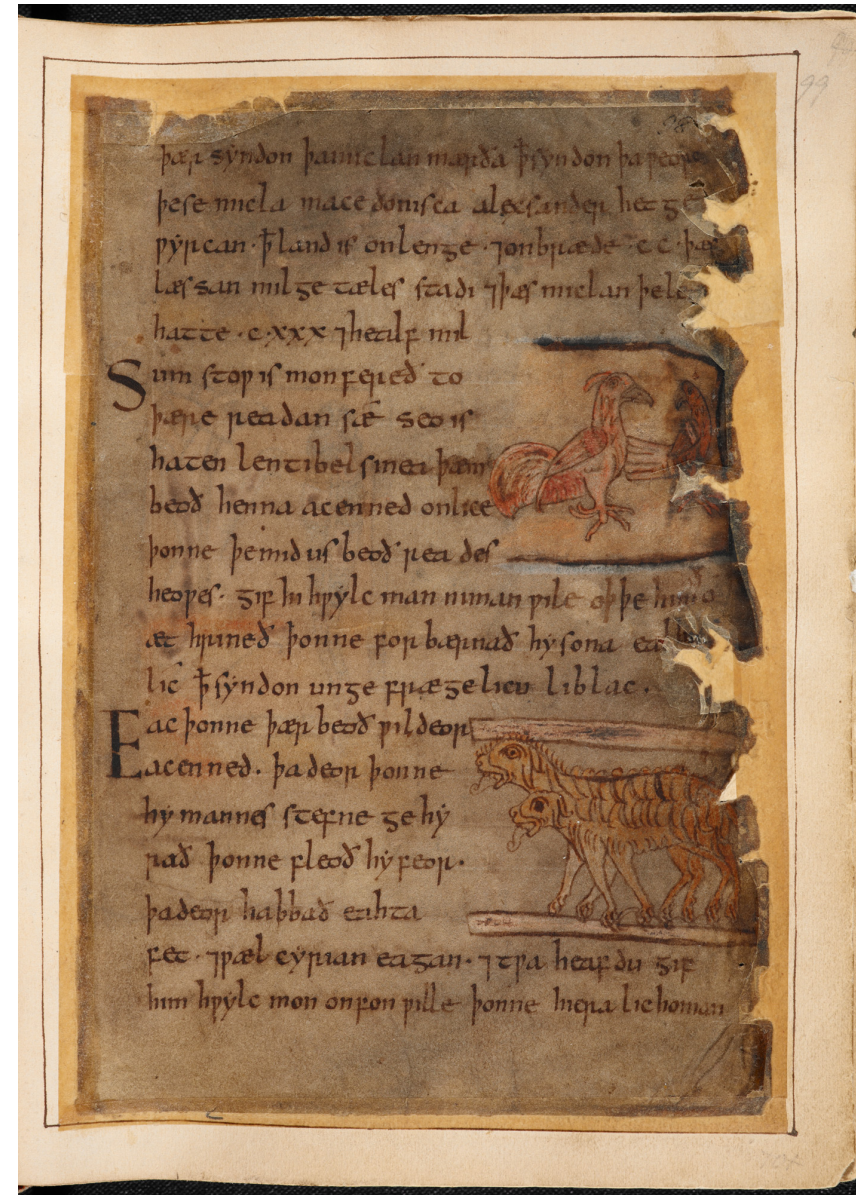 þær syndon þa miclan mærða ꝥ syndon þa
þe se micla macedonisca alexsander het ge
ƿyrcan · ꝥ land is on lenge · ⁊ on bræde · cc · þæs
læssan milgetæles stadi ⁊ þæs miclan þe
hatte · c · xxx ⁊ healf mil
Sum stoƿ is mon fereð to
þære readan sæ seo is
haten lentibelsinea þæm
beoð henna acenned onlice
þonne þe mid us beoð reades
heoƿes · gif hi hƿylc man niman ƿile oþþe hira
æt hrineð þonne forbærnað hy sona eall his
lic ꝥ syndon ungefrægelicu liblac .
Eac þonne þær beoð ƿildeor
acenned · þa deor þonne
hy mannes stefne gehy
rað þonne fleoð hy feor ·
þa deor habbað eahta
fet · ⁊ ƿælcyrian eagan · ⁊ tƿa heafdu gif
him hƿylc mon onfon ƿille þonne hiera lichoman
99